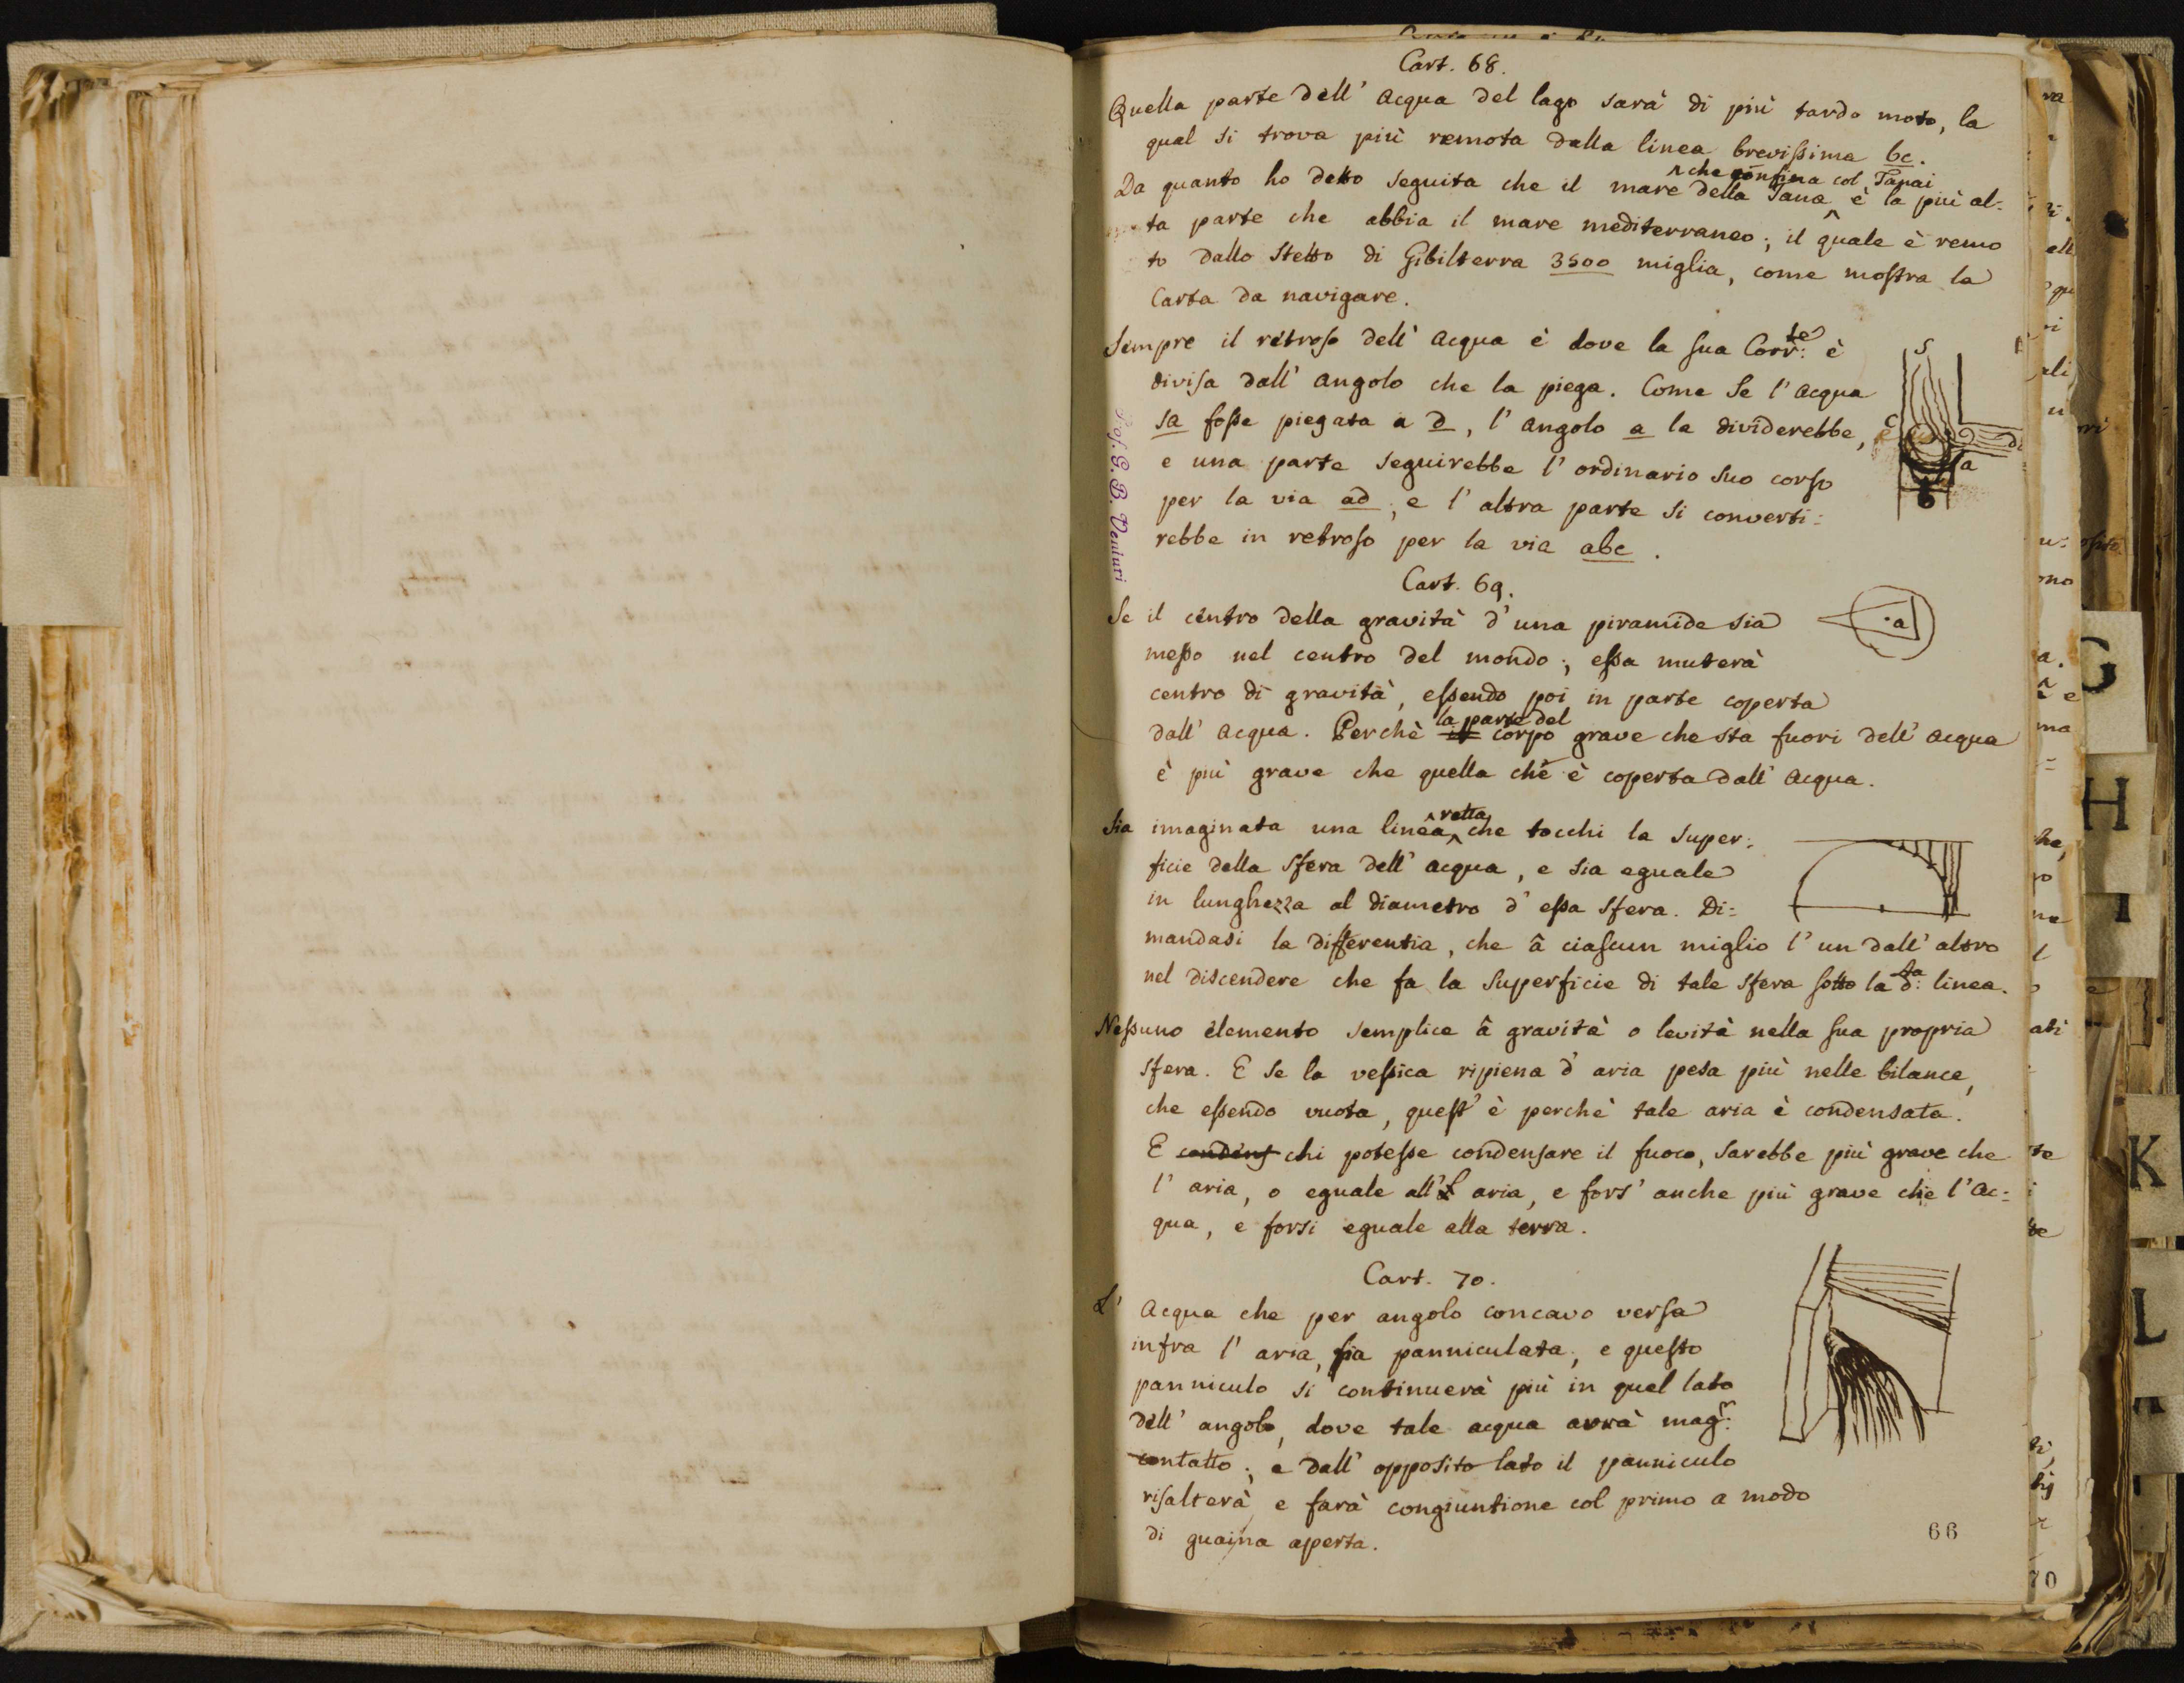 Cart. 68.
Quella parte dell' acqua del lago sarà di più tardo moto, la
qual si trova più remota dalla linea brevissima bc.
che confina col Tanai
Da quanto ho detto seguita che il mare della Tana ^ è la più al=
ta parte che abbia il mare mediterraneo; il quale è remo
to dallo stetto di Gibilterra 3500 miglia, come mostra la
Carta da navigare.
Sempre il retroso dell' acqua è dove la sua Corr:te è
divisa dall' angolo che la piega. Come se l' acqua
sa fosse piegata a d, l' angolo a la dividerebbe,
e una parte seguirebbe l' ordinario suo corso
per la via ad; e l' altra parte si converti=
rebbe in retroso per la via abc.
S
c
d
a
b
Prof. G. B. Venturi
Cart. 69.
Se il centro della gravità d' una piramide sia
messo nel centro del mondo; essa muterà
centro di gravità, essendo poi in parte coperta
la parte del
dall' acqua. Perchè il corpo grave che sta fuori dell' acqua
è più grave che quella che è coperta dall' acqua.
a
Sia imaginata una linea ^retta che tocchi la super=
ficie della sfera dell' acqua, e sia eguale
in lunghezza al diametro d' essa sfera. Di=
mandasi la differentia, che â ciascun miglio l' un dall' altro
nel discendere che fa la superficie di tale sfera sotto la d:ta linea.
Nessuno elemento semplice â gravità o levità nella sua propria
sfera. E se la vessica ripiena d' aria pesa più nelle bilance,
che essendo vuota, quest' è perchè tale aria è condensata.
E condens chi potesse condensare il fuoco, sarebbe più grave che
l' aria, o eguale all' aria, e fors' anche più grave che l' ac=
qua, e forsi eguale alla terra.
Cart. 70.
L' acqua che per angolo concavo versa
infra l' aria, fia panniculata; e questo
panniculo si continuerà più in quel lato
dell' angolo, dove tale acqua avrà mag:r
contatto; e dall' opposito lato il panniculo
risalterà e farà congiuntione col primo a modo
di guaina aperta.
66
70
G
H
I
K
L